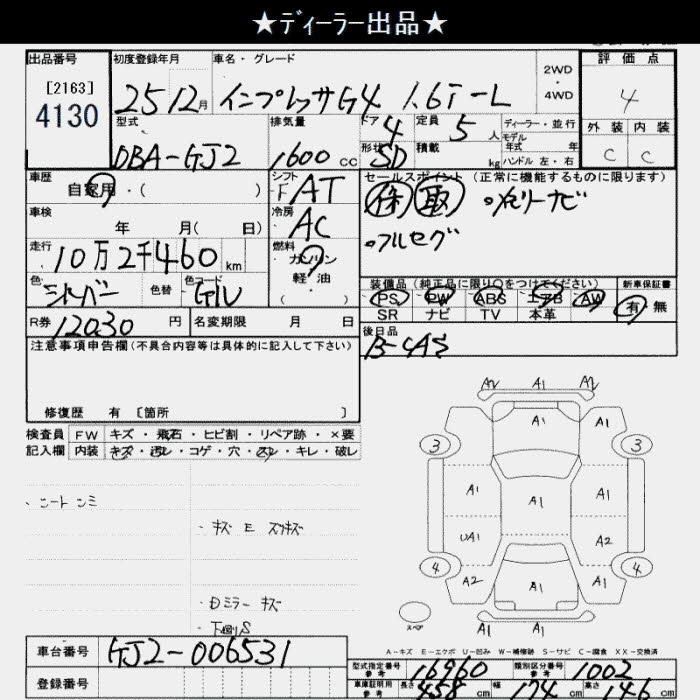 ★ディーラー出品★
出品番号 初度登録年月 車名・グレード 2WD・4WD 評価点
[2163]
4130 25 12月 インプレッサG4 1.6i-L 4
型式 排気量 ドア 4 定員 5人 ディーラー・並行 外装 内装
モデル年式 年
DBA-GJ2 1600cc 形状 SD 積載 kg ハンドル 左・右 C C
車歴 自家用・( ) シフト FAT セールスポイント (正常に機能するものに限ります)
車検 年 月( 日) 冷房 AC 保 取 ・メモリーナビ
・フルセグ
走行 10万2千460km 燃料 ガソリン 軽・油 ( )
色 シルバー 色替 色コード G1U 装備品 (純正品に限り○をつけてください) 新車保証書
PS PW ABS エアB AW 有・無
SR ナビ TV 本革
R券 12030円 名変期限 月 日 後日品
B-CAS
注意事項申告欄(不具合内容等は具体的に記入して下さい)
修復歴 有 [箇所 ]
検査員 FW キズ・飛石・ヒビ割・リペア跡・×要
記入欄 内装 キズ・汚レ・コゲ・穴・スレ・キレ・破レ
A2 A1 A2
A1
3 3
A1 A1 A1
UA1 A2
4 4
A2 A1 A1
A1 A1
スペア
・シートシミ
・キズ E スリキズ
・Dミラーキズ
・下廻りS
A-キズ E-エクボ U-凹み W-補修跡 S-サビ C-腐食 XX-交換済
車台番号 GJ2-006531
型式指定番号 参考 16960 類別区分番号 参考 1002
登録番号 車庫証明用 参考 長さ 458cm 幅 174cm 高さ 146cm